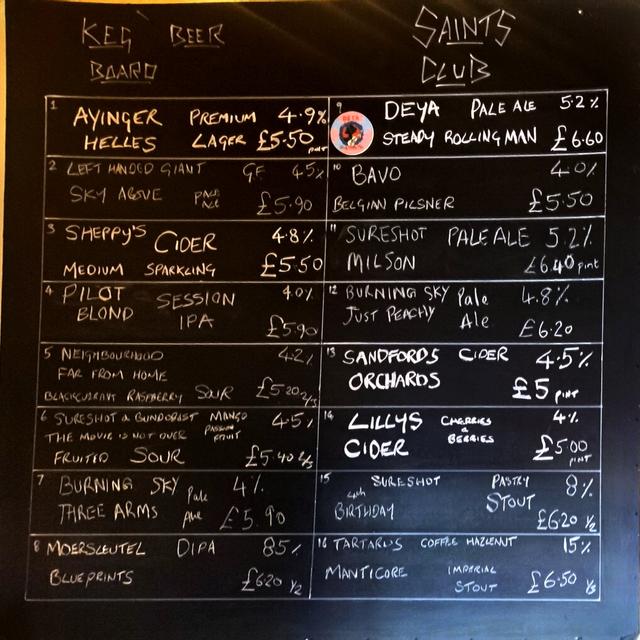 KEG BEER BOARD
SAINTS CLUB
1 AYINGER PREMIUM 4.9%
HELLES LAGER £5.50 PINT
2 LEFT HANDED GIANT GF 4.5%
SKY ABOVE PALE ALE £5.90
3 SHEPPY'S CIDER 4.8%
MEDIUM SPARKLING £5.50
4 PILOT SESSION 4.0%
BLOND IPA £5.90
5 NEIGHBOURHOOD 4.2%
FAR FROM HOME
BLACKCURRANT RASPBERRY SOUR £5.20 2/3
6 SURESHOT & DUNDORBST MANGO 4.5%
THE MOVIE IS NOT OVER PASSION FRUIT
FRUITED SOUR £5.40 2/3
7 BURNING SKY Pale 4%
THREE ARMS Ale £5.90
8 MOERSLEUTEL DIPA 8.5%
BLUEPRINTS £6.20 1/2
9 DEYA PALE ALE 5.2%
STEADY ROLLING MAN £6.60
10 BAVO 4.0%
BELGIAN PILSNER £5.50
11 SURESHOT PALE ALE 5.2%
MILSON £6.40 pint
12 BURNING SKY Pale 4.8%
JUST PEACHY Ale £6.20
13 SANDFORDS CIDER 4.5%
ORCHARDS £5 PINT
14 LILLYS CHERRIES & BERRIES 4%
CIDER £5.00 PINT
15 SURESHOT PASTRY 8%
4th BIRTHDAY STOUT £6.20 1/2
16 TARTARUS COFFEE HAZLENUT 15%
MANTICORE IMPERIAL STOUT £6.50 1/3